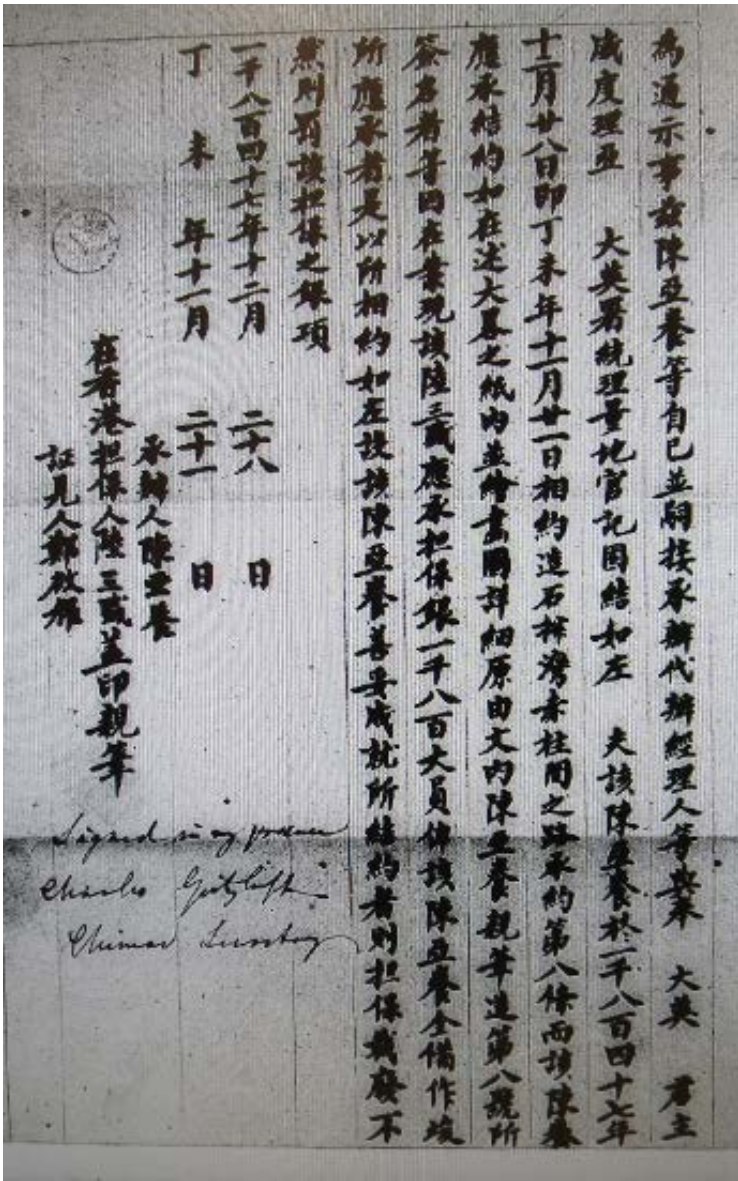 為通示事茲陳亞養等自己並嗣接承辦代辦經理人等與本　大英　君主
威度理亞　大英署統理量地官記因結如左　夫該陳亞養於一千八百四十七年
十二月廿八日即丁未年十一月廿一日相約造石排灣赤柱間之路承約第八條而該陳養
應承結約如在述大畧之紙內並繪畫圖詳細原由文內陳亞養親筆進第八號所
簽名者等因在案現該陸三感應承担保銀一千八百大員俾該陳亞養全備作竣
所應承者是以所相約如左設該陳亞養善妥成就所結約者則担保戢廢不
然則罰該担保之銀項
一千八百四十七年十二月　二十八　日
丁　未　年十一月　二十一　日
承辦人陳亞養
在香港担保人陸三感蓋印親筆
証見人鄭
Signed in my presence
Charles Gutzlaff
Chinese Secretary